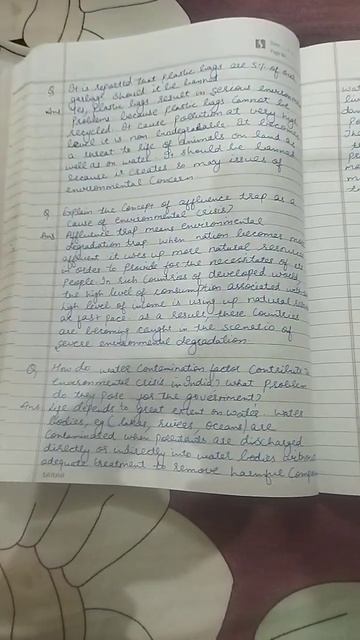 Q It is reported that Plastic bags are 5% of our
garbage should it be banned
Ans Yes, Plastic bags result in serious environm
Problems because plastic bags cannot be
recycled. It cause pollution at very high
level it is non biodegradable. It
a threat to life of animals on land as
well as on water. It should be banned
because it creates so many issues of
environmental concern
Q Explain the concept of affluence trap as a
cause of environmental crisis?
Ans Affluence trap means environmental
degradation trap when nation becomes more
affluent it uses up more natural resource
in order to provide for the necessitates of its
People In rich countries of developed world
the high level of consumption associated with
high level of income is using up natural
at fast pace as a result these countries
are becoming caught in the scenario of
severe environmental degradation
Q How do water contamination factor contribute to
environmental crisis in India? What problem
do they pose for the government?
Ans Life depends to great extent on water. Water
bodies, eg (lakes, rivers, oceans) are
contaminated when pollutants are discharged
directly or indirectly into water bodies
adequate treatment to remove harmful